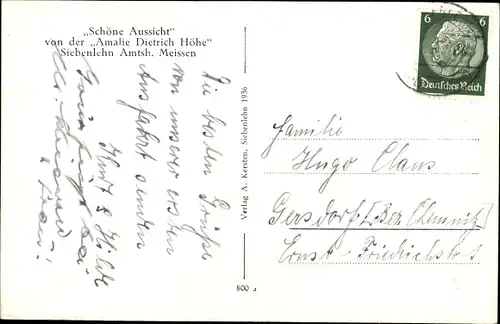 „Schöne Aussicht"
von der „Amalie Dietrich Höhe"
Siebenlehn Amtsh. Meissen
Die besten Grüße
von unserer ersten
Ausfahrt senden
Kurt & Hilde
Verlag A. Kersten, Siebenlehn 1936
800 a
6 6
Deutsches Reich
Familie
Hugo Claus
Gersdorf [Bez. Chemnitz]
Ernst-Friedrichstr 1